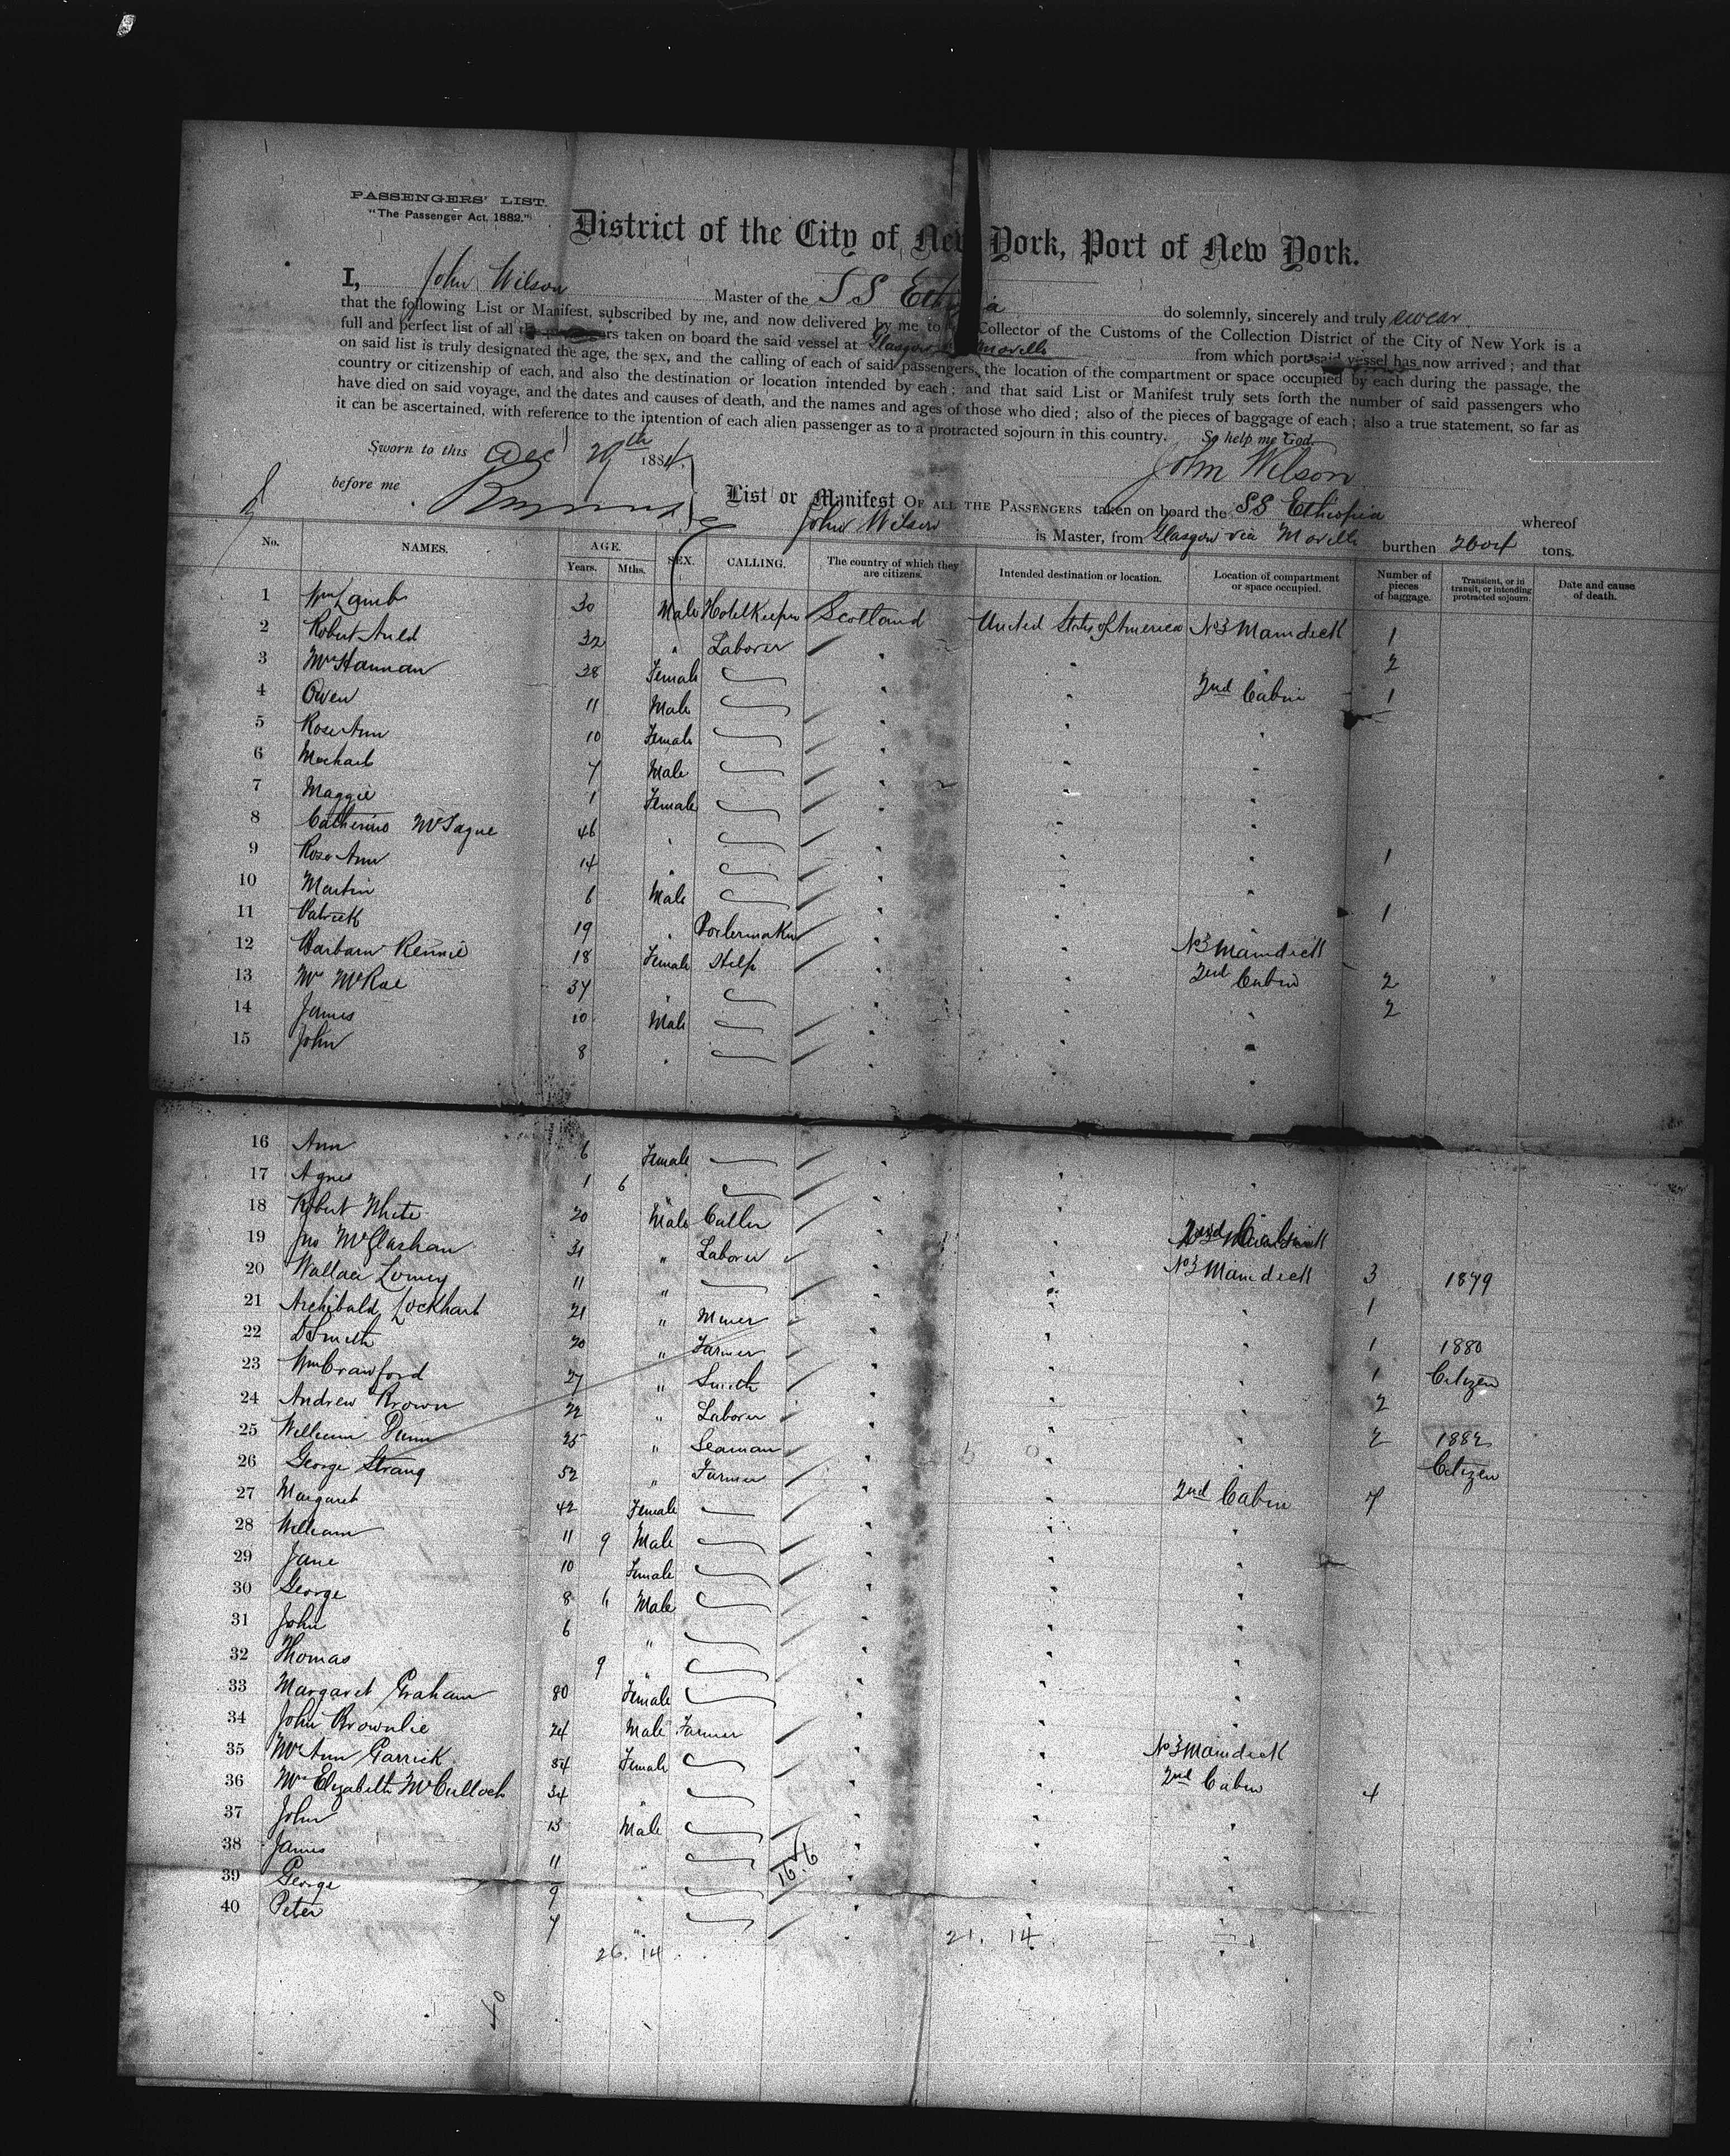 PASSENGERS' LIST.
"The Passenger Act, 1882."
District of the City of New York, Port of New York.
I, John Wilson Master of the SS Ethiopia do solemnly, sincerely and truly swear
that the following List or Manifest, subscribed by me, and now delivered by me to Collector of the Customs of the Collection District of the City of New York is a
full and perfect list of all taken on board the said vessel at Glasgow Moville from which port said vessel has now arrived; and that
on said list is truly designated the age, the sex, and the calling of each of said passengers, the location of the compartment or space occupied by each during the passage, the
country or citizenship of each, and also the destination or location intended by each; and that said List or Manifest truly sets forth the number of said passengers who
have died on said voyage, and the dates and causes of death, and the names and ages of those who died; also of the pieces of baggage of each; also a true statement, so far as
it can be ascertained, with reference to the intention of each alien passenger as to a protracted sojourn in this country. So help me God.
Sworn to this Dec 29th 1884. John Wilson
before me
List or Manifest OF ALL THE PASSENGERS taken on board the SS Ethiopia whereof
John Wilson is Master, from Glasgow via Moville burthen 2604 tons.
No. NAMES. AGE. Years. Mths. SEX. CALLING. The country of which they are citizens. Intended destination or location. Location of compartment or space occupied. Number of pieces of baggage. Transient, or in transit, or intending protracted sojourn. Date and cause of death.
1 Wm Lamb 30 Male Hotelkeeper Scotland United States of America No3 Maindeck 1
2 Robert Auld 32 " Laborer " " 2
3 Mrs Hannan 38 Female " " 2nd Cabin 1
4 Owen 11 Male " " "
5 Rose Ann 10 Female " " "
6 Michael 7 Male " " "
7 Maggie 1 Female " " "
8 Catherine McTague 46 " " " " 1
9 Rose Ann 14 " " " "
10 Martin 6 Male " " " 1
11 Patrick 19 " Boilermaker " " No3 Maindeck
12 Barbara Rennie 18 Female Help " " 2nd Cabin 2
13 Mrs McRae 37 " " " " 2
14 James 10 Male " " "
15 John 8 " " " "
16 Ann 6 Female " " "
17 Agnes 1 6 " " "
18 Robert White 20 Male Cutler " "
19 Jno McGlashan 31 " Laborer " " No3 Maindeck 3 1879
20 Wallace 11 " " " " 1
21 Archibald Lockhart 21 " Miner " " " 1 1880
22 D Smith 20 " Farmer " " " 1 Citizen
23 Wm Crawford 27 " Smith " " " 2
24 Andrew Brown 22 " Laborer " " " 2 1882
25 William Dunn 25 " Seaman " " " Citizen
26 George Strang 52 " Farmer " " 2nd Cabin 7
27 Margaret 42 Female " " "
28 William 11 9 Male " " "
29 Jane 10 Female " " "
30 George 8 6 Male " " "
31 John 6 " " " "
32 Thomas 9 " " " "
33 Margaret Graham 80 Female " " "
34 John Brownlie 24 Male Farmer " " No3 Maindeck
35 Mrs Ann Garrick 54 Female " " 2nd Cabin 4
36 Mrs Elizabeth McCulloch 34 " " " "
37 John 13 Male " " "
38 James 11 " " " "
39 George 9 " " " "
40 Peter 7 " " " "
16.6
26. 14 21. 14
40